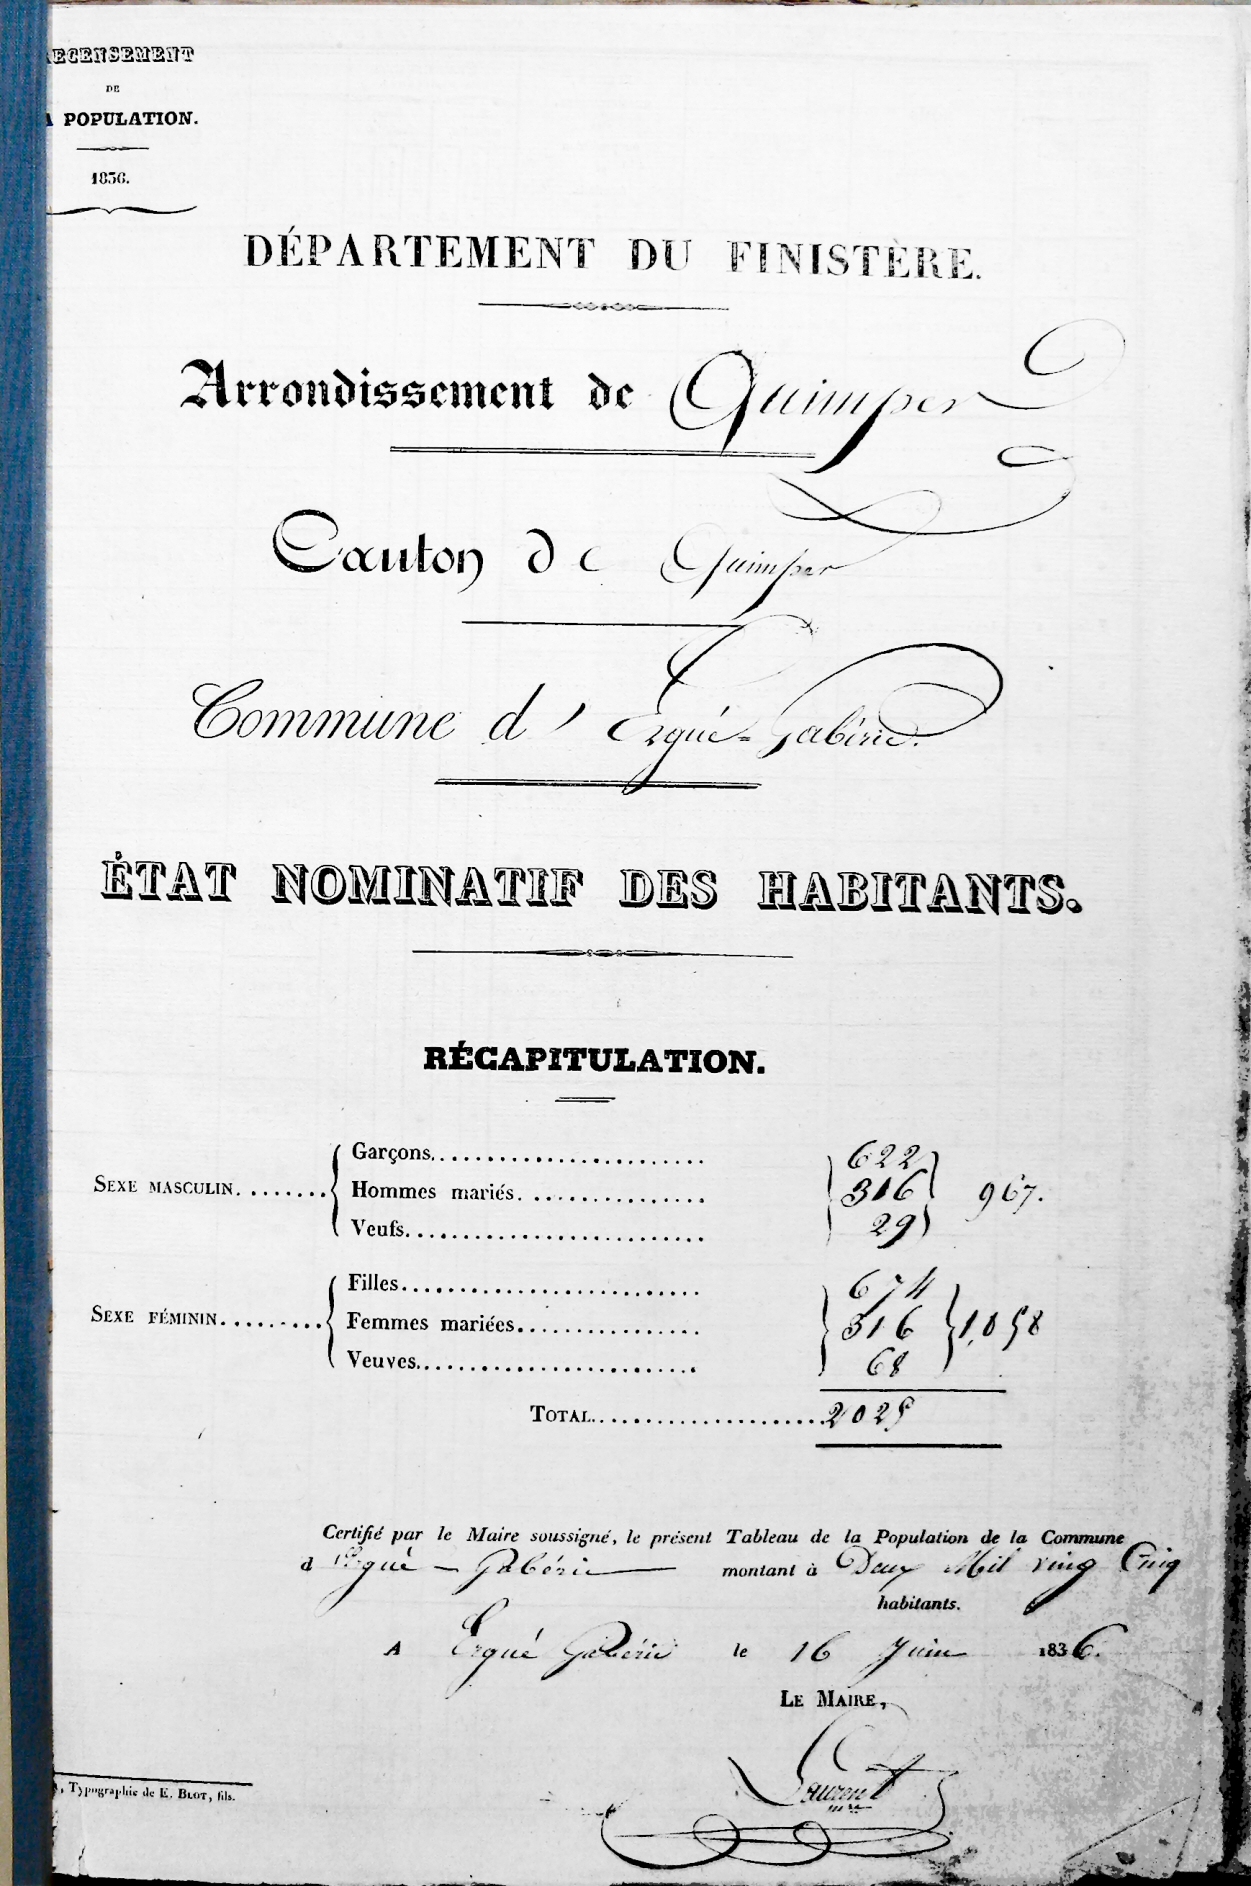 RECENSEMENT
DE
A POPULATION.
1836.
DÉPARTEMENT DU FINISTÈRE.
Arrondissement de Quimper
Canton de Quimper
Commune d' Ergué-Gabéric.
ÉTAT NOMINATIF DES HABITANTS.
RÉCAPITULATION.
Garçons........................ 622
SEXE MASCULIN........ Hommes mariés................ 316 967.
Veufs.......................... 29
Filles.......................... 674
SEXE FÉMININ......... Femmes mariées................ 316 1,058
Veuves......................... 68
TOTAL..................... 2025
Certifié par le Maire soussigné, le présent Tableau de la Population de la Commune
d'Ergué-Gabéric montant à Deux Mil ving Cinq
habitants.
A Ergué Gabéric le 16 Juin 1836.
LE MAIRE,
Laurent
, Typographie de E. BLOT, fils.